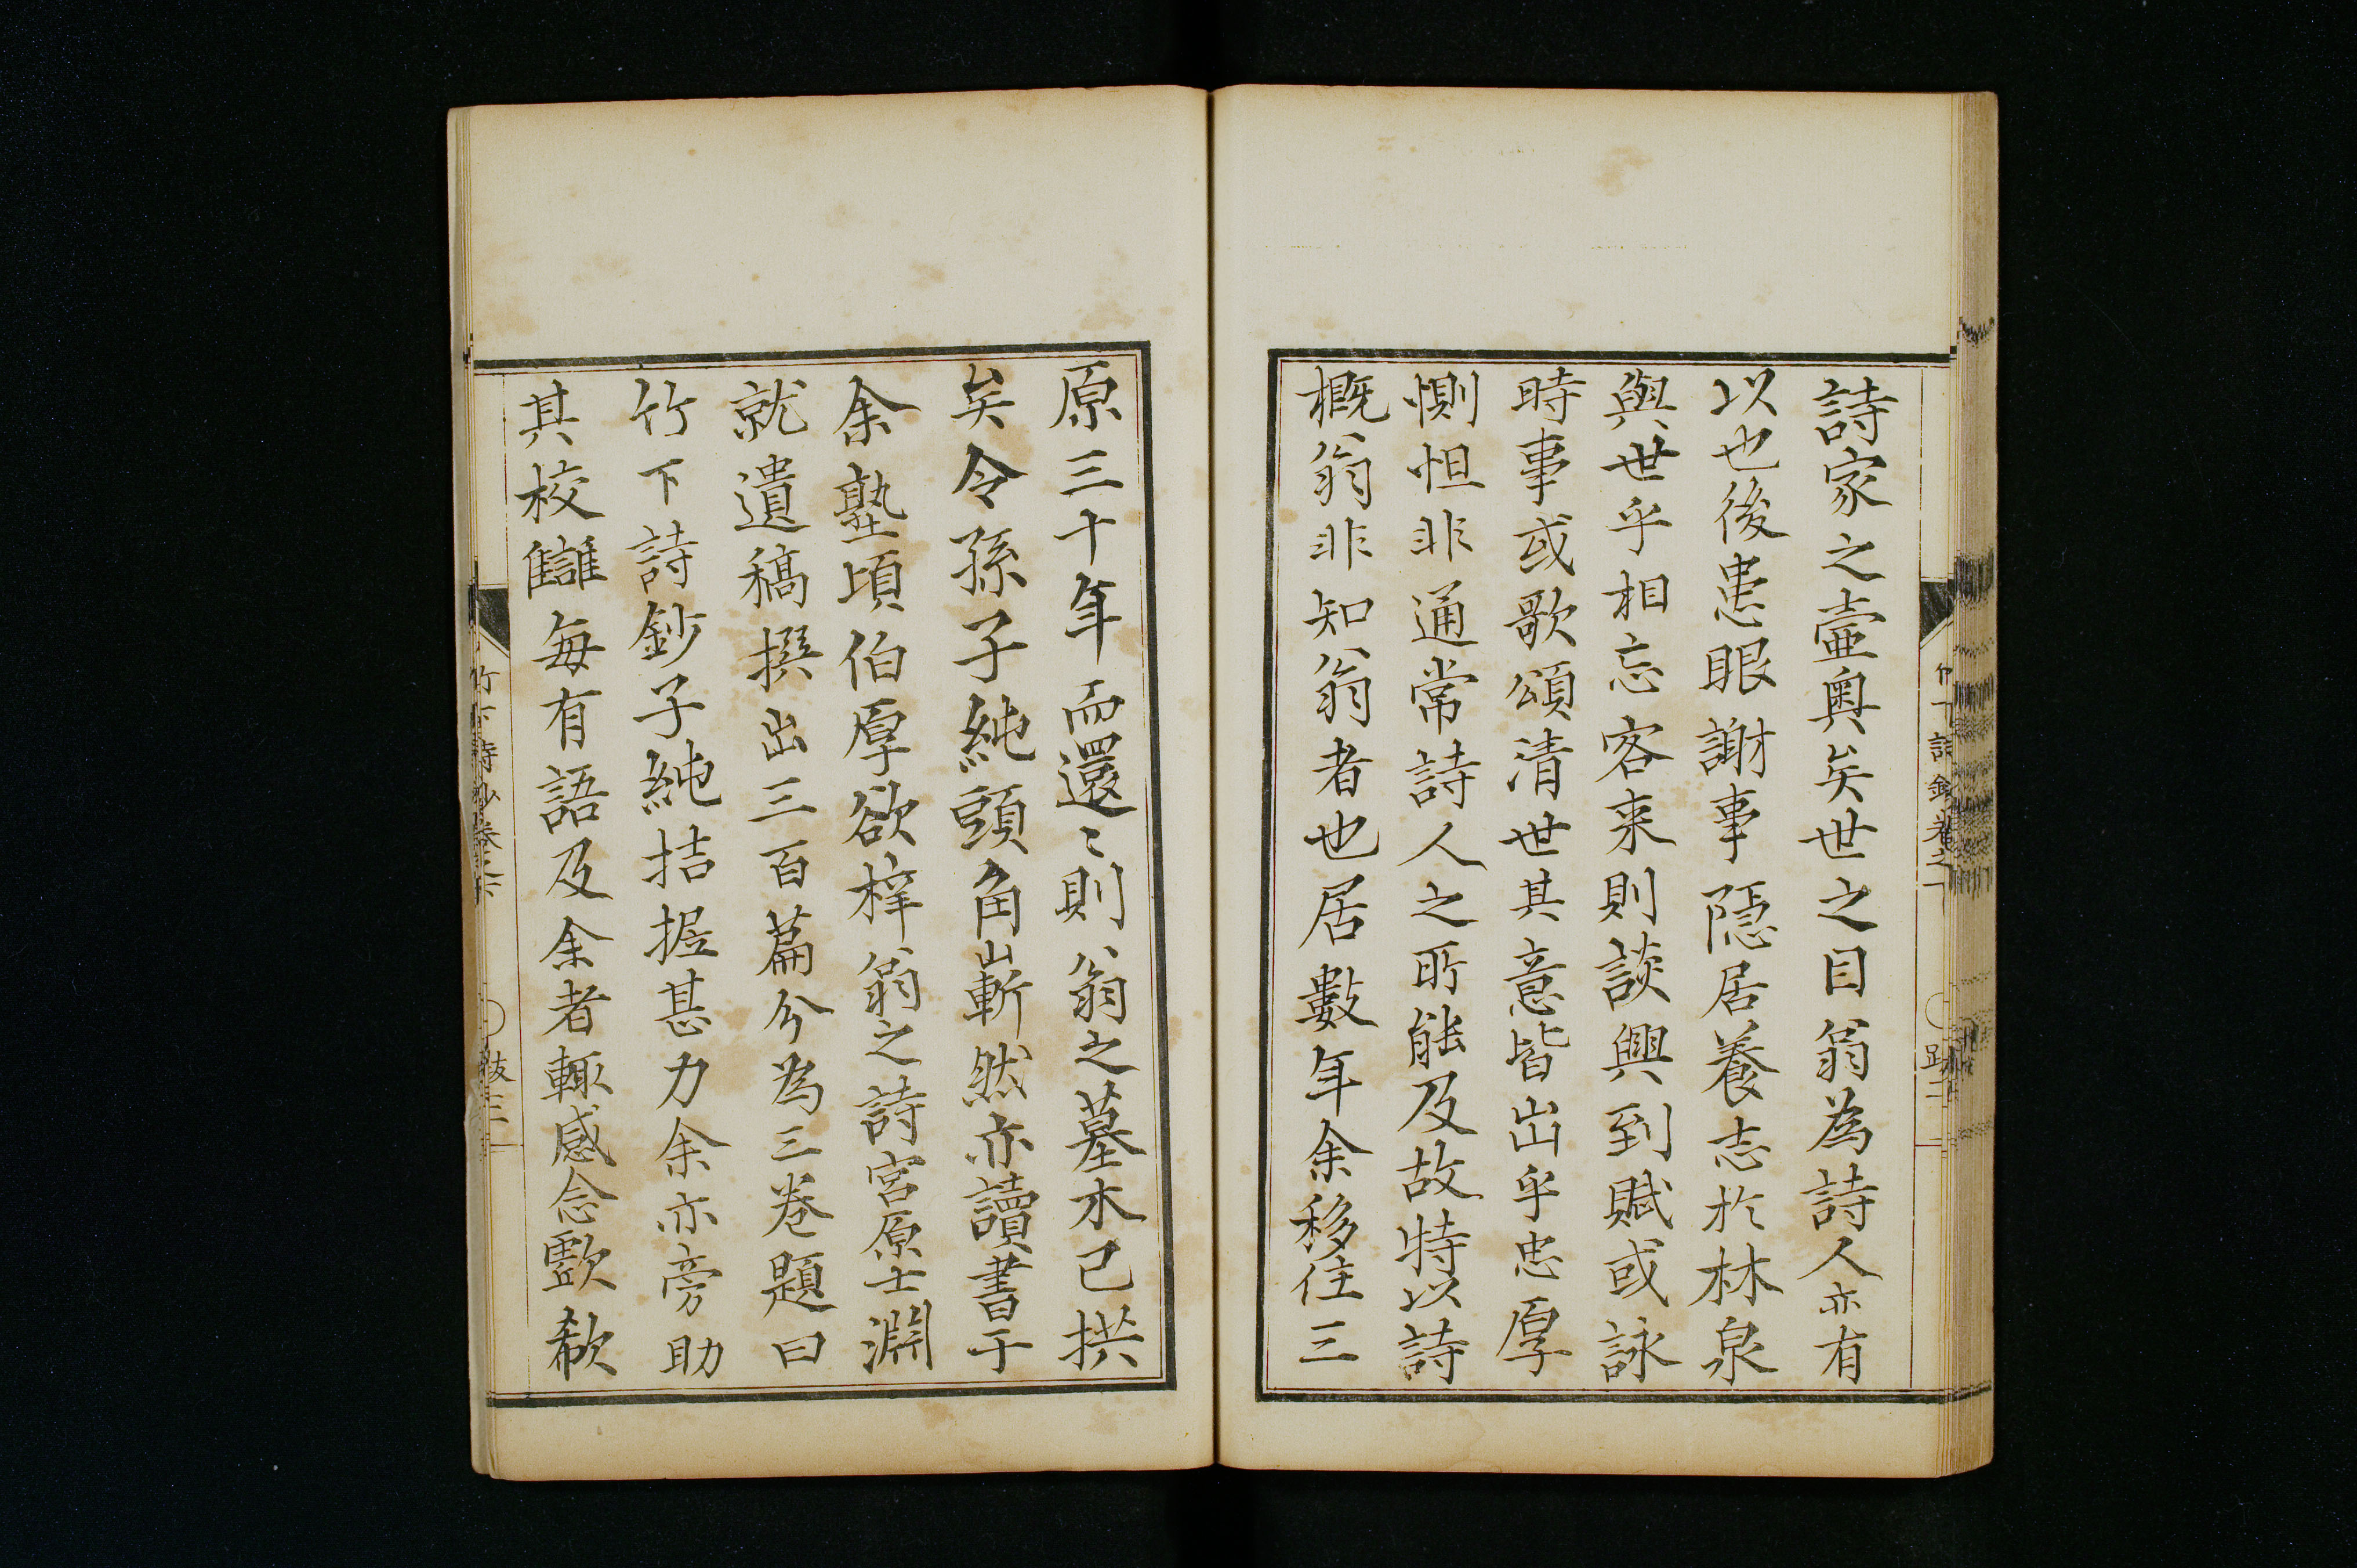 詩家之壷奥矣世之目翁為詩人亦有
以也後患眼謝事隠居養志於林泉
與世乎相忘客来則談興到賦或詠
時事或歌頌清世其意皆出乎忠厚
惻怛非通常詩人之所能及故特以詩
概翁非知翁者也居數年余移住三
原三十年而還〻則翁之墓木已拱
矣令孫子純頭角嶄然亦讀書于
余塾頃伯厚欲梓翁之詩宮原士淵
就遺稿撰出三百篇分為三卷題曰
竹下詩鈔子純拮据甚力余亦旁助
其校讎每有語及余者輒感念歔欷
竹下詩鈔卷之下
跋三